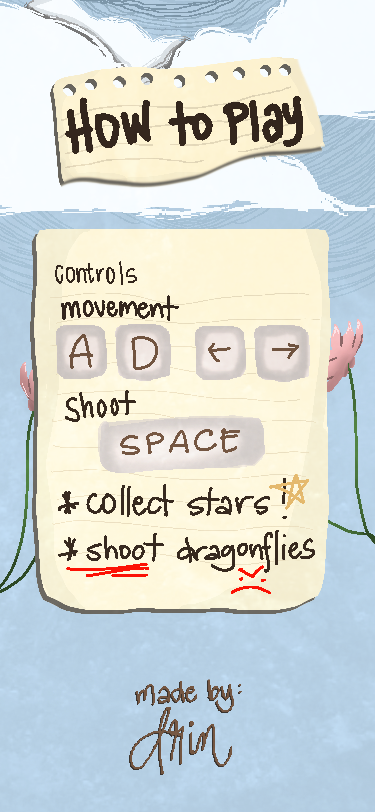 How to Play
controls
movement
A D ← →
Shoot
SPACE
* collect stars!
* shoot dragonflies
made by: